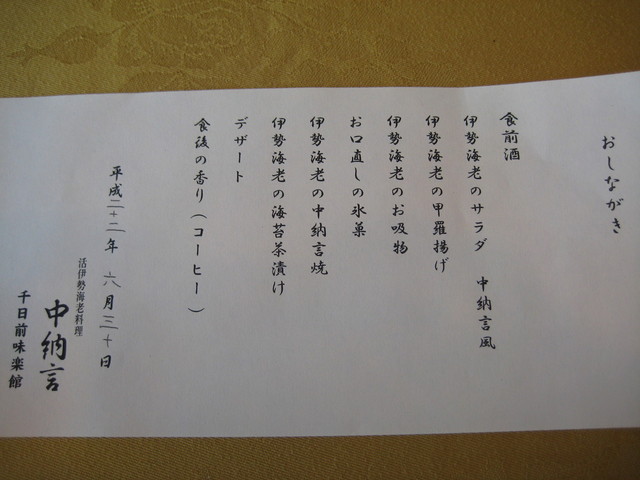 おしながき
食前酒
伊勢海老のサラダ　中納言風
伊勢海老の甲羅揚げ
伊勢海老のお吸物
お口直しの氷菓
伊勢海老の中納言焼
伊勢海老の海苔茶漬け
デザート
食後の香り（コーヒー）
平成二十二年 六月三十日
活伊勢海老料理
中納言
千日前味楽館